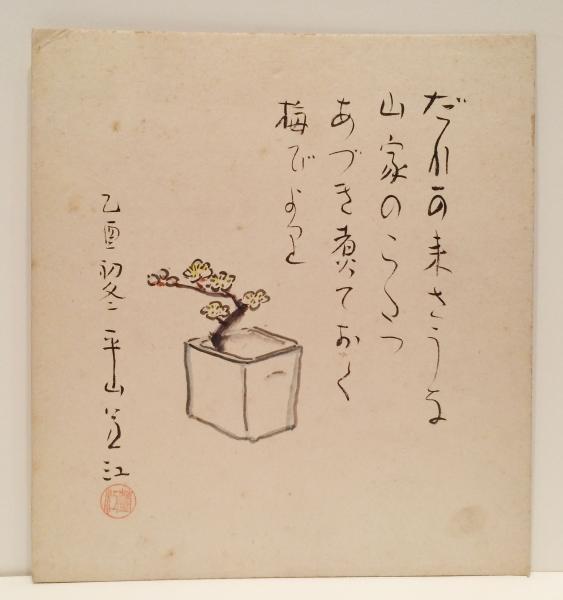 だれか来さうな
山家のこたつ
あづき煮ておく
梅びより
乙酉初冬 平山芦江